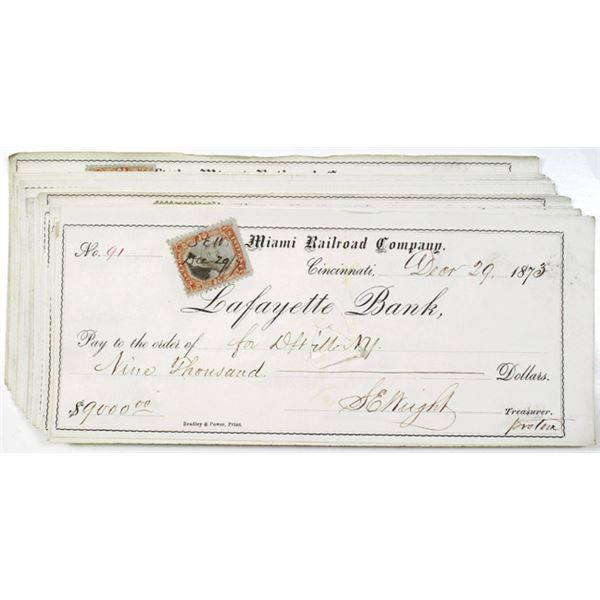 Miami Railroad Company.
No. 91
S.E.W.
Dec 29
Cincinnati, Decr 29 1873
Lafayette Bank,
Pay to the order of for
Nine Thousand Dollars.
$9000.00 S E Wright Treasurer.
Bradley & Power, Print. pro tem